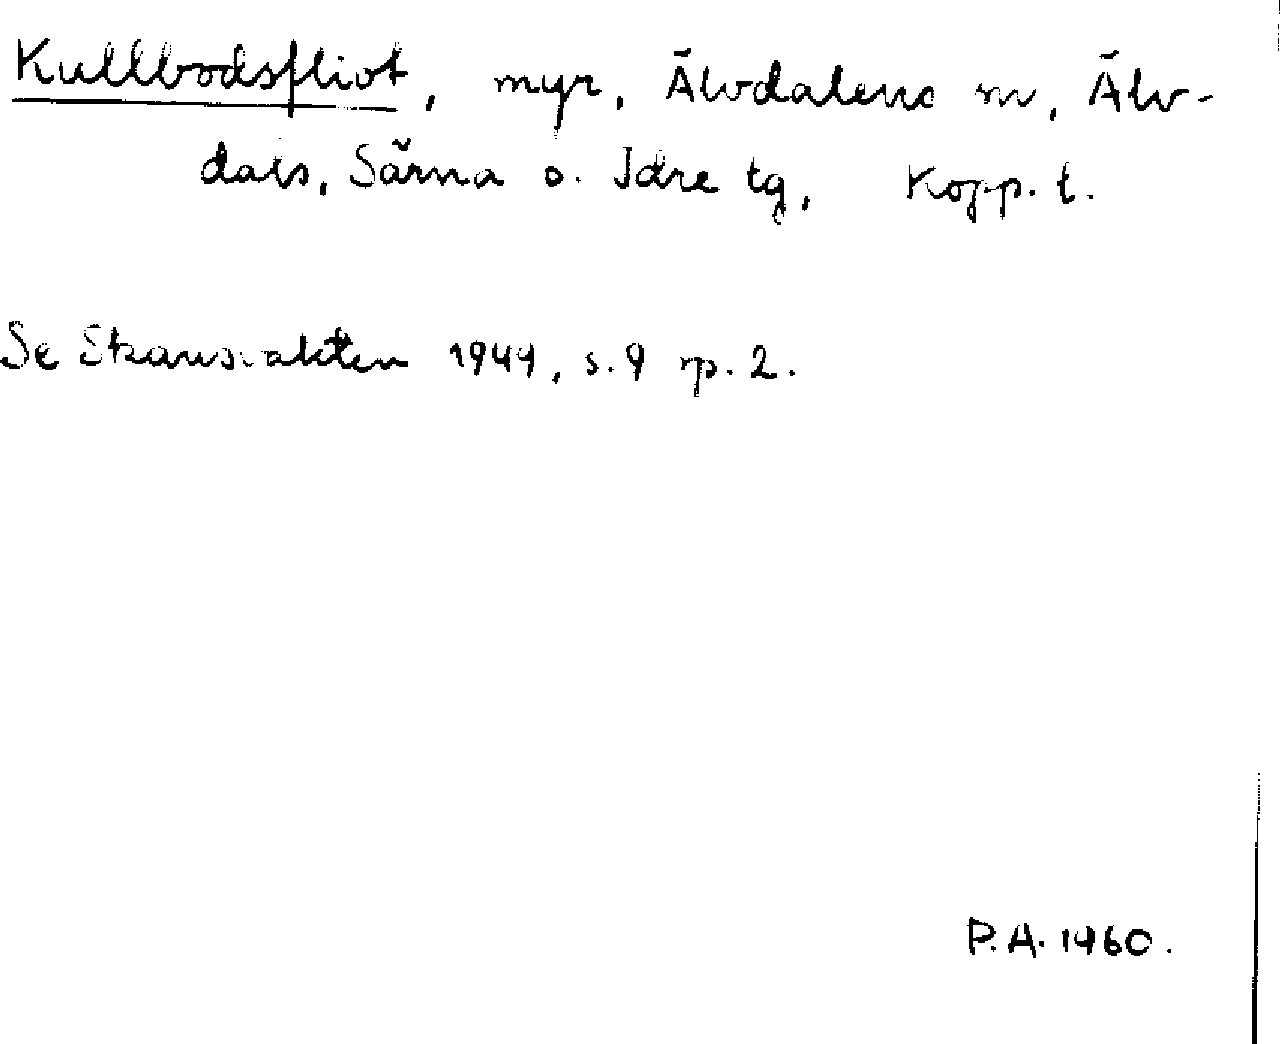 Kullbodsfliot, myr, Älvdalens sn, Älv-
dals, Särna o. Idre tg, Kopp. l.
Se Skansvakten 1944, s. 9 sp. 2.
P.A. 1960.